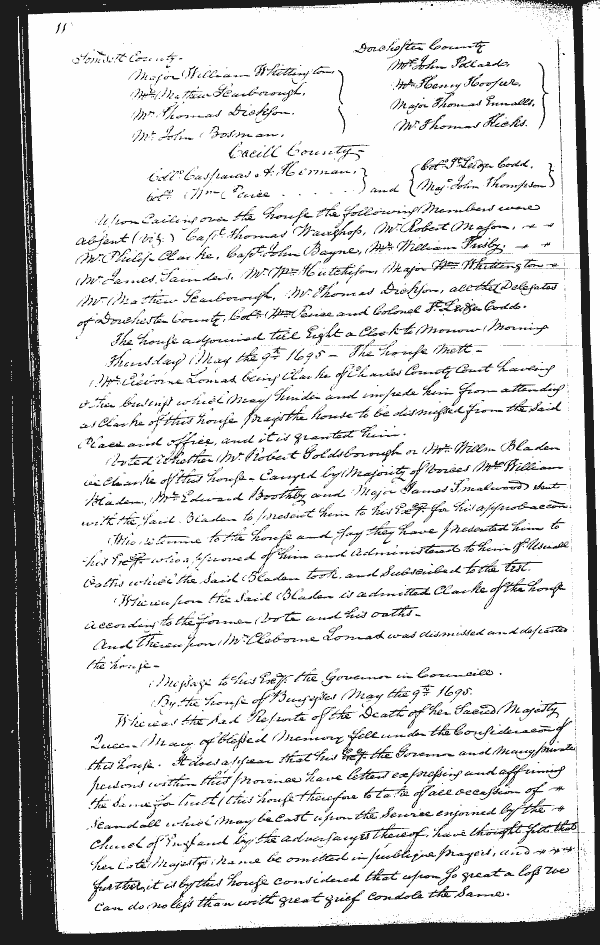 11
Somersett County.
Major William Whittington
Mr Mathew Scarborough,
Mr Thomas Dickson.
Mr John Bosman.
Dorchester County
Mr John Pollard.
Mr Henry Hooper.
Major Thomas Ennalls.
Mr Thomas Hicks.
Cecill County
Collo Casparus A. Herman,
Collo Wm Peirce and
Collo St. Leidger Codd.
Majr John Thompson
Upon Calling over the house the following Members were
absent (vizt.) Capt Thomas Waughop, Mr Robert Mason,
Mr Philip Clarke, Capt John Bayne, Mr William Husby,
Mr James Saunders, Mr Wm Hutchison, Major Wm Whittington
Mr Mathew Scarborough, Mr Thomas Dickson, all the Delegates
of Dorchester County, Collo Wm Peirce and Colonel St. Leidger Codd.
The house adjourned till Eight a Clock to Morrow Morning
Thursday May the 9th 1695 - The house Mett -
Mr Cleborne Lomax being Clarke of Charles County Court having
other business which May hinder and impede him from attending
as Clarke of this house prays the house to be dismissed from the said
Place and office, and it is granted him
Voted whether Mr Robert Goldsborough or Mr Willm Bladen
be Clarke of this house. Carryed by Majority of voices Mr William
Bladen, Mr Edward Boothby and Major James Smalwood sent
with the said Bladen to present him to his Excy for his approbacon.
Who returne to the house and say they have presented him to
his Excy who approved of him and Administred to him the Usuall
Oaths which the said Bladen took and Subscribed to the test.
Whereupon the said Bladen is admitted Clarke of the house
according to the former Vote and his oaths -
And thereupon Mr Cleborne Lomax was dismissed and departed
the house -
Message to his Excy the Governor in Councill.
By the house of Burgesses May the 9th 1695.
Whereas the sad Reports of the Death of her Sacred Majesty
Queen Mary of blessed Memory fell under the Consideracon of
this house. It does appear that his Excy the Governor and Many private
persons within this province have letters expressing and affirming
the same for truth this house therefore to take of all occasion of
scandall which may be cast upon the service enjoyned by the
Church of England by the adversarys thereof. have thought fitt that
her Late Majestys Name be omitted in publique prayers, and
further, it is by this house considered that upon so great a loss we
can do no less than with great grief condole the Same.